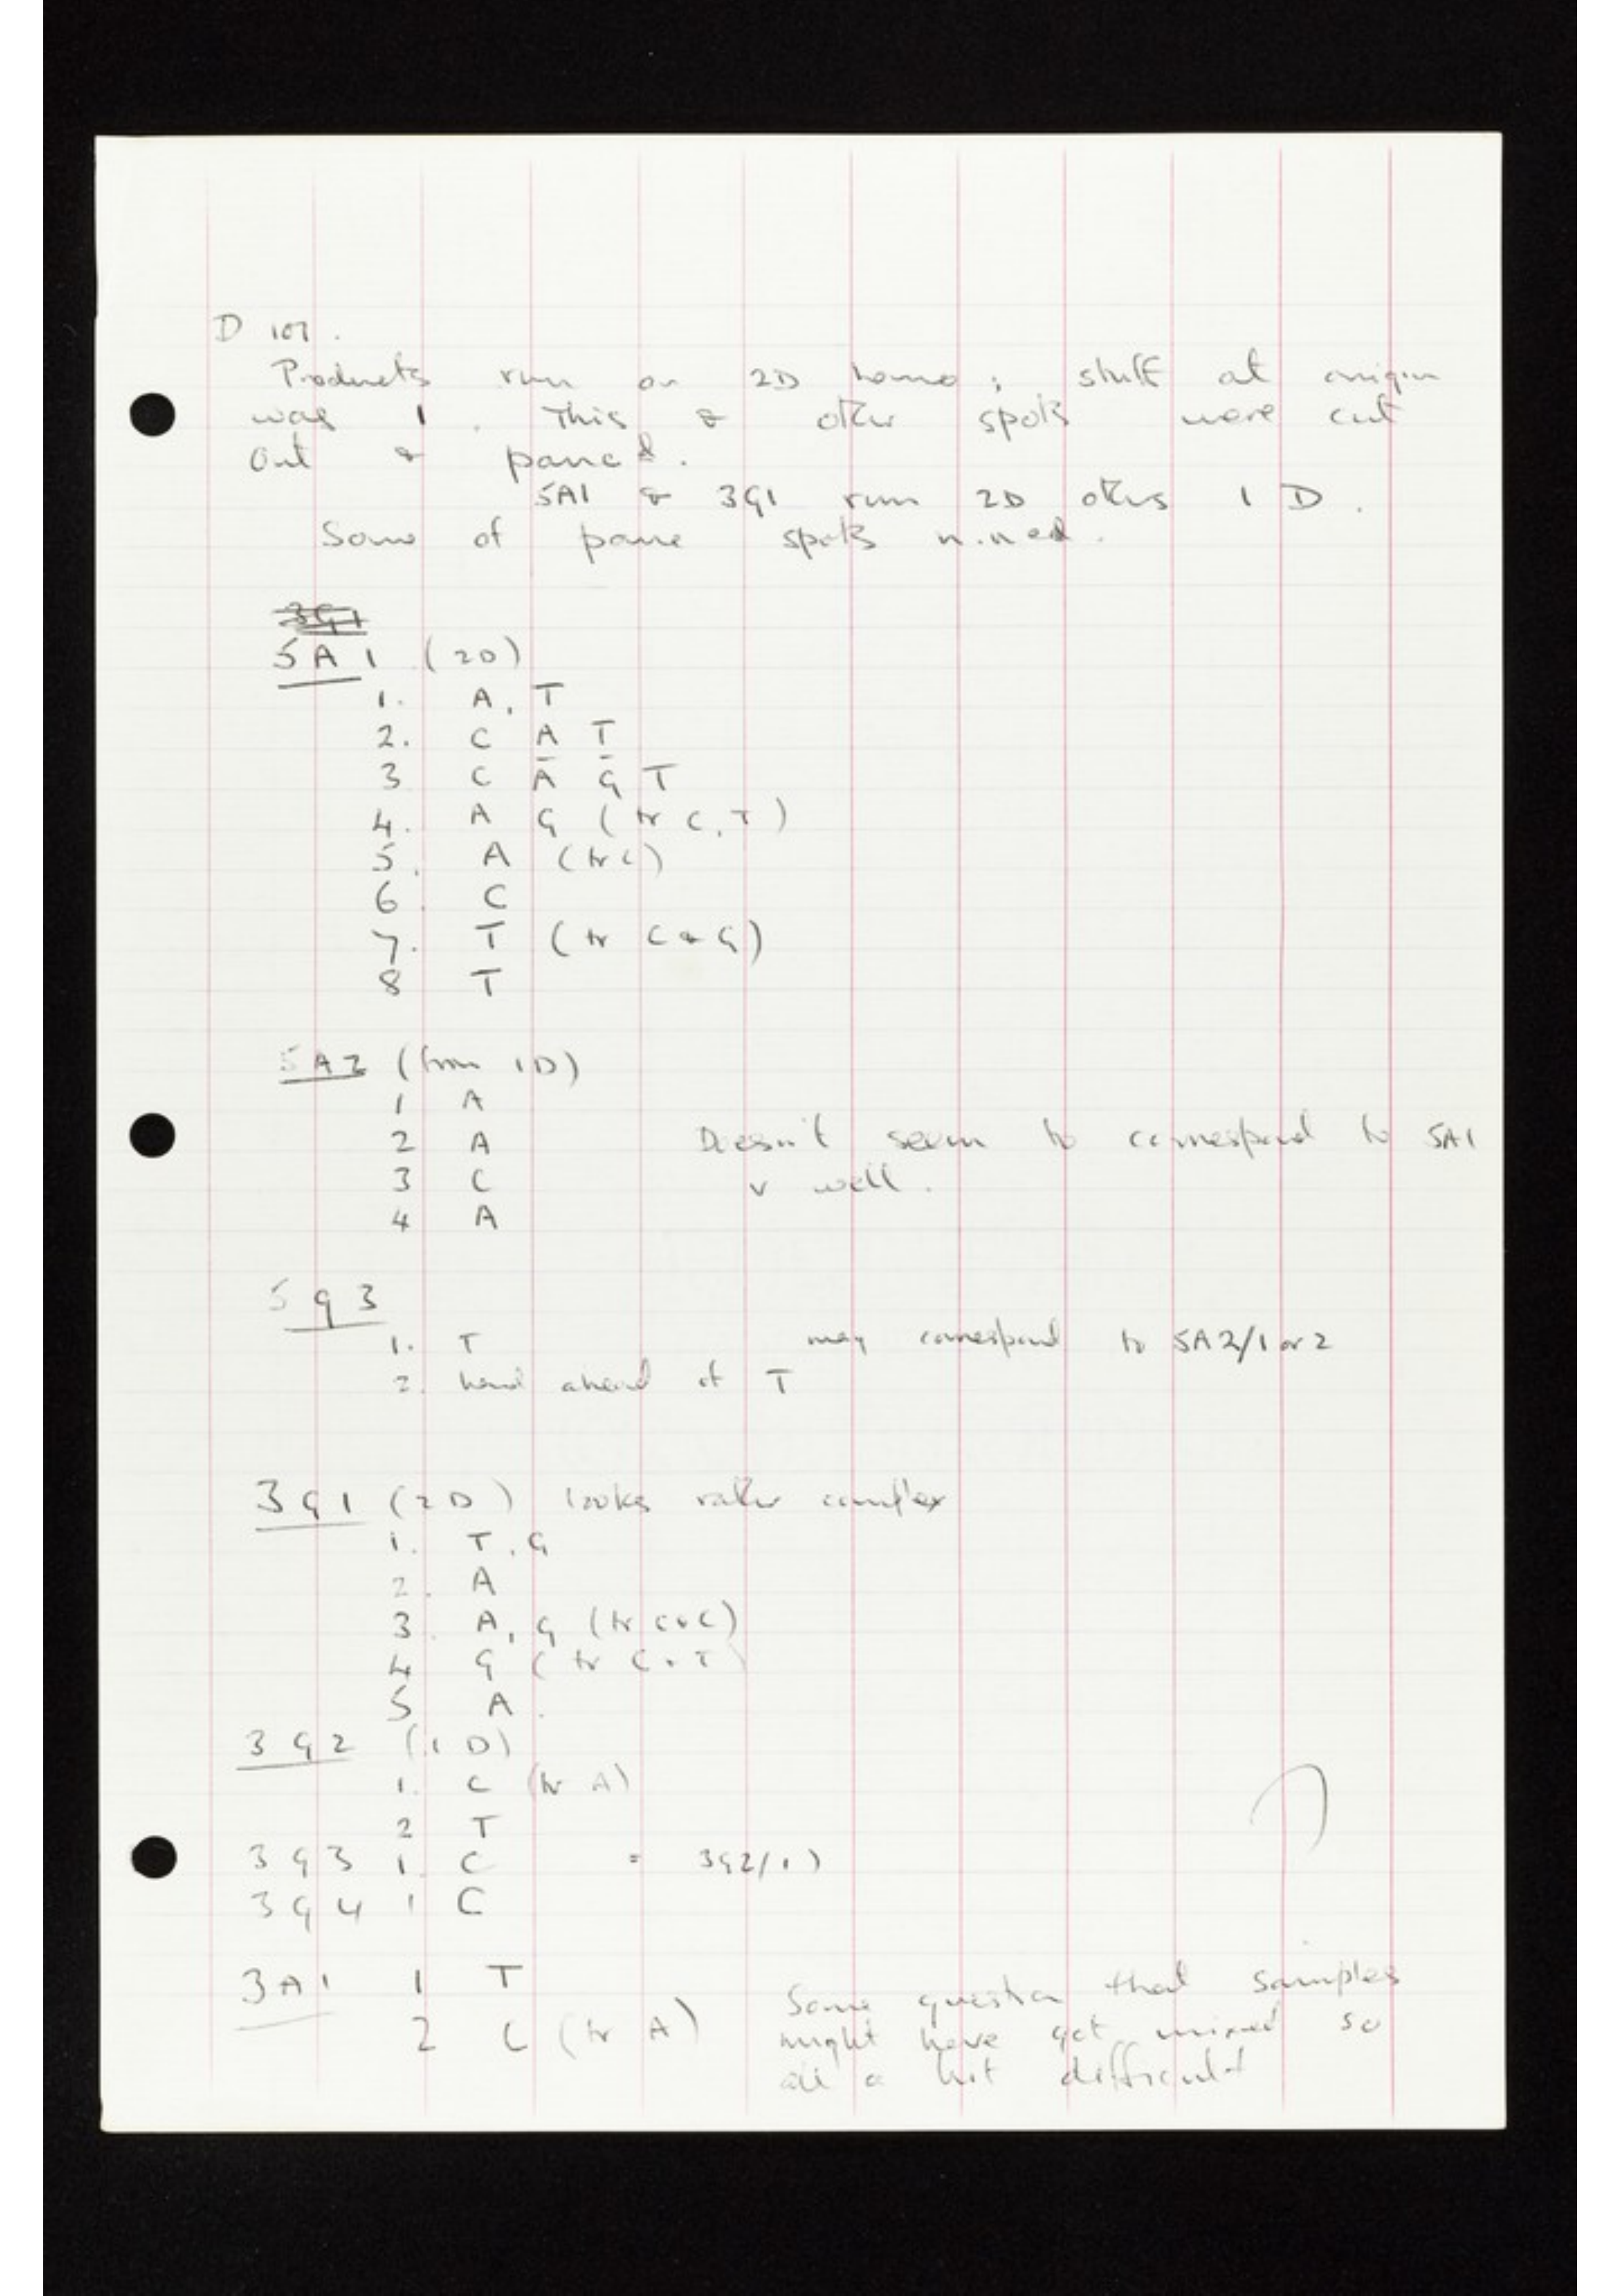 D 107.
Products run on 2D homo; stuff at origin
was 1. This & other spots were cut
out & panc d.
5A1 & 3G1 run 2D others 1 D.
Some of panc spots n.n ed.
3G1
5A1 (2D)
1. A, T
2. C A T
3 C A G T
4. A G (tr C, T)
5. A (tr C)
6. C
7. T (tr C & G)
8 T
5A2 (from 1D)
1 A
2 A Doesn't seem to correspond to 5A1
3 C v well.
4 A
5G3
1. T may correspond to 5A2/1 or 2
2. band ahead of T
3G1 (2D) looks rather complex
1. T, G
2. A
3. A, G (tr C & C)
4 G (tr C & T)
5 A.
3G2 (1D)
1. C (tr A)
2 T
3G3 1. C = 3G2/1)
3G4 1 C
3A1 1 T Some question that samples
2 C (tr A) might have got mixed so
all a bit difficult